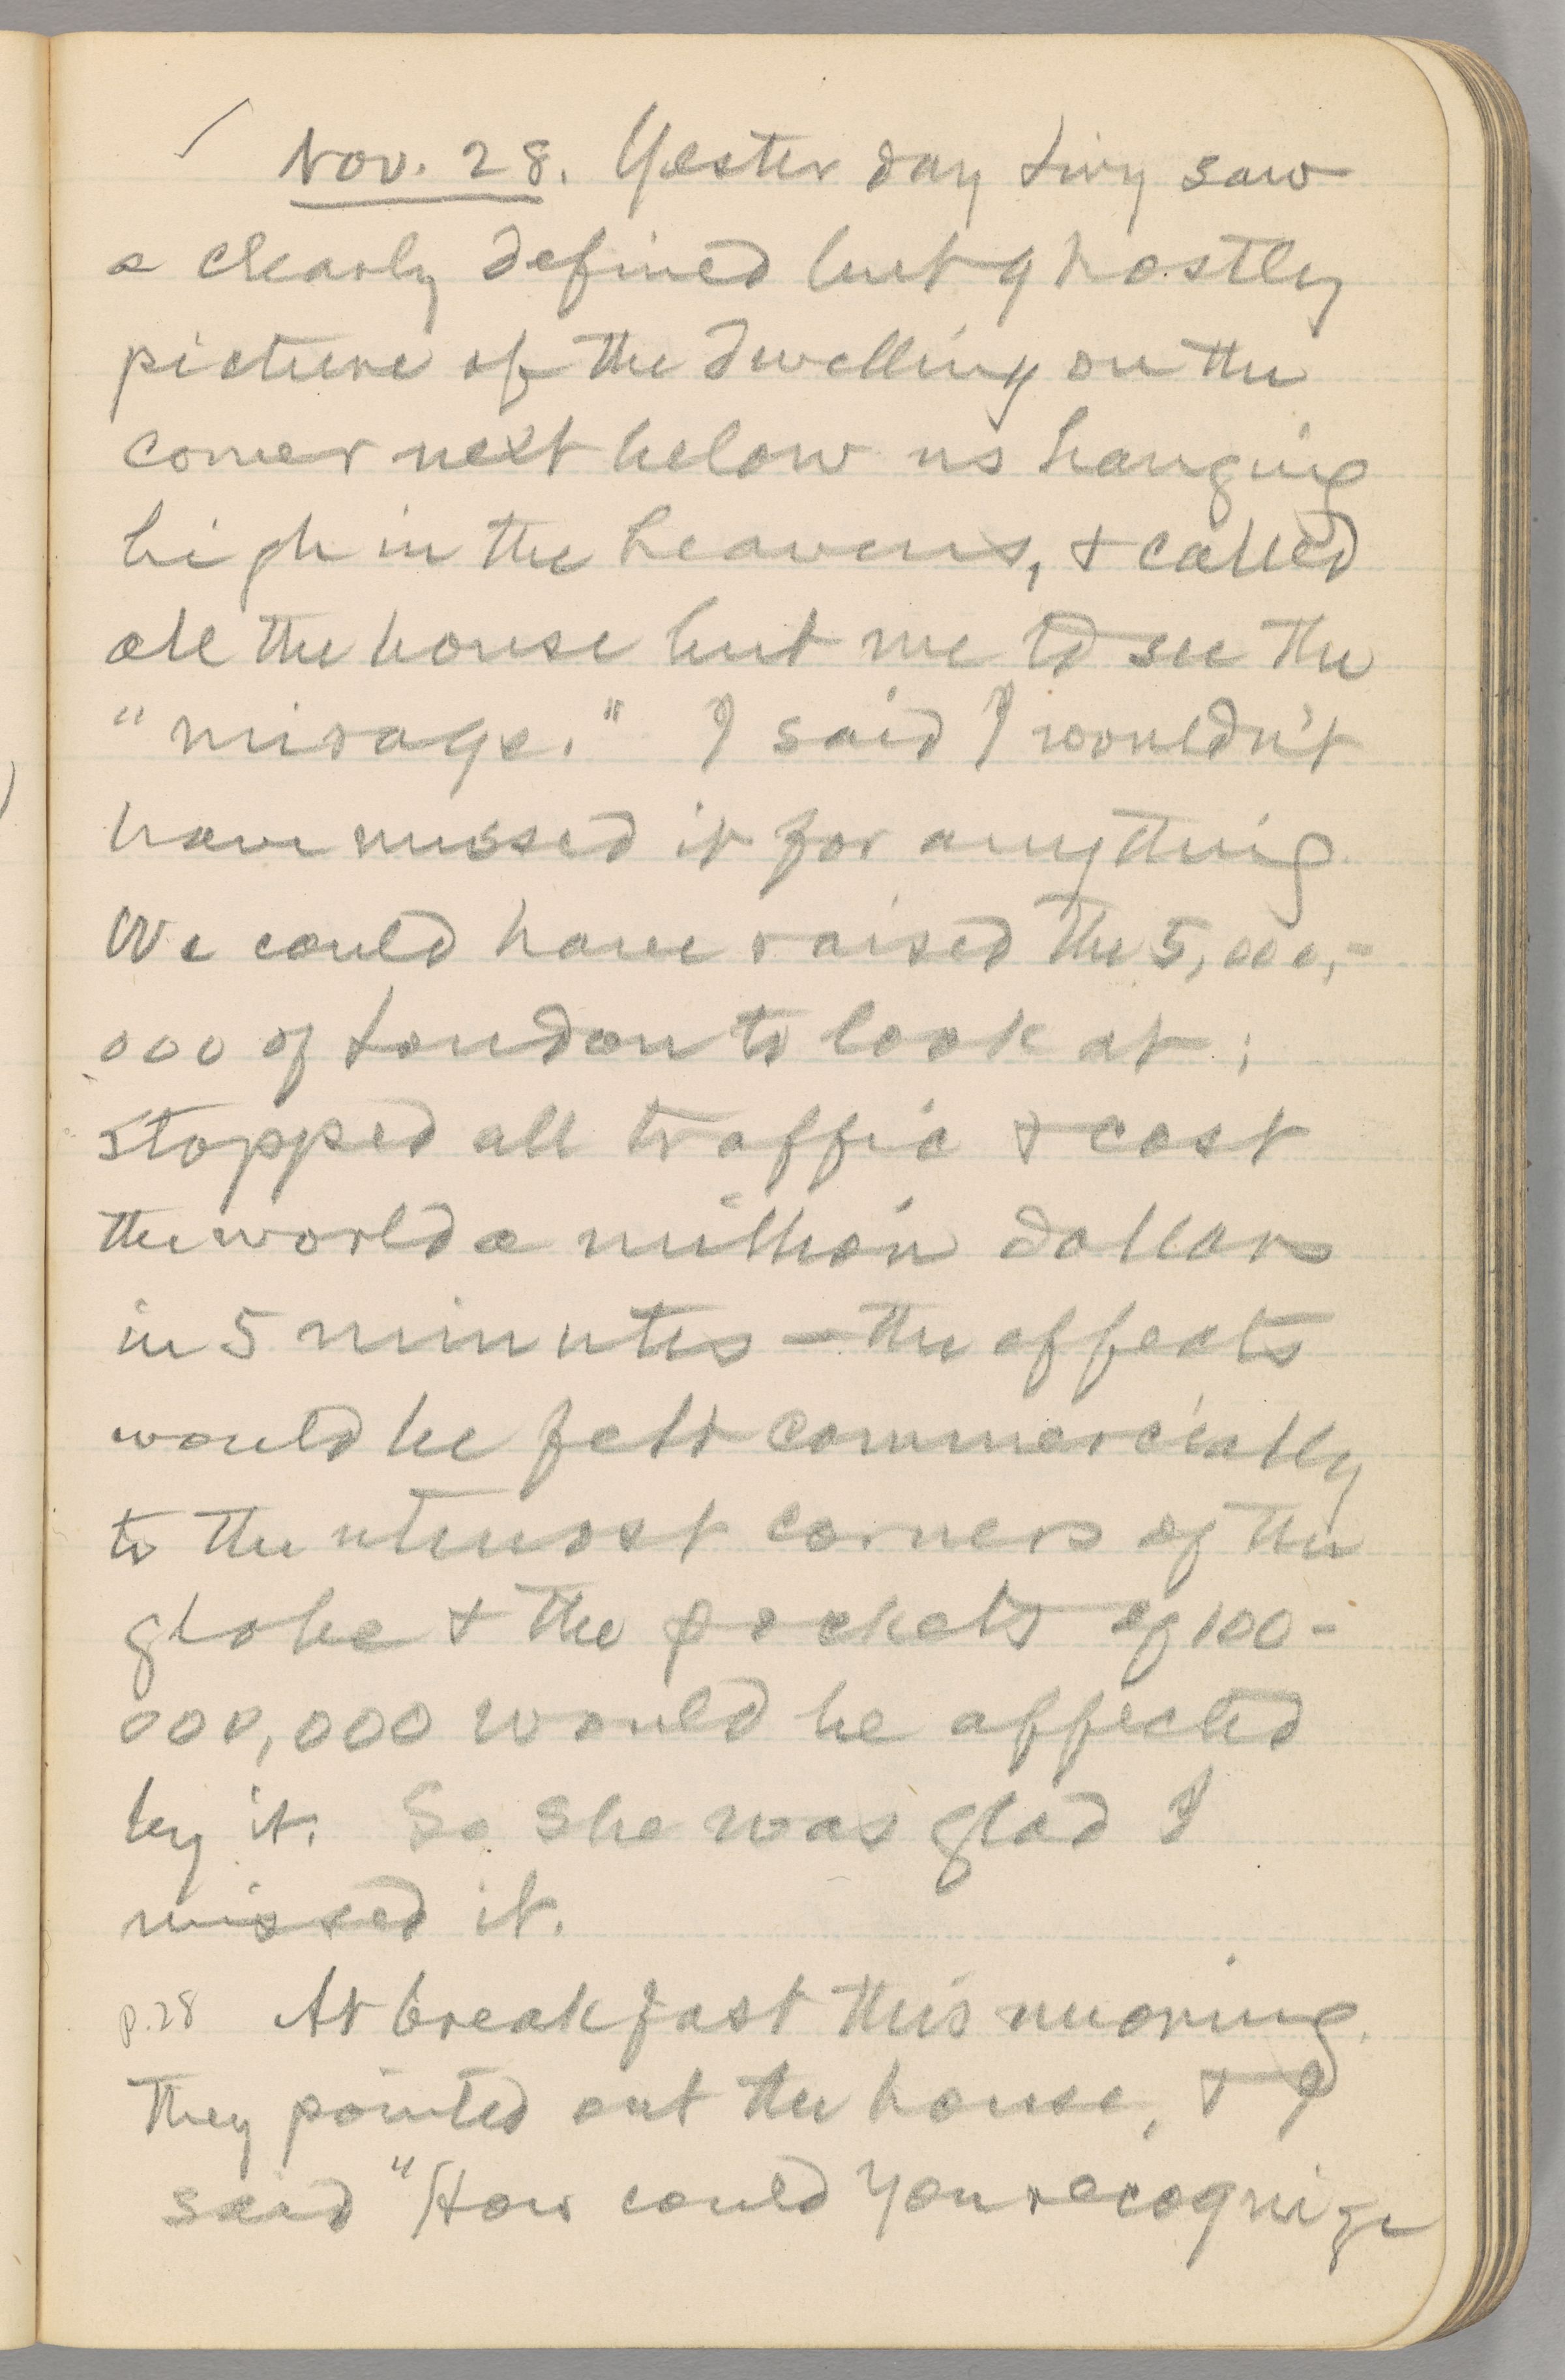 Nov. 28. Yesterday Livy saw
a clearly defined but ghostly
picture of the dwelling on the
corner next below us hanging
high in the heavens, & called
all the house but me to see the
"mirage." I said I wouldn't
have missed it for anything.
We could have raised the 5,000,-
000 of London to look at ;
stopped all traffic & cost
the world a million dollars
in 5 minutes — the effects
would be felt commercially
to the utmost corners of the
globe & the pockets of 100-
000,000 would be affected
by it. So she was glad I
missed it.
p.28 At breakfast this morning
they pointed out the house, & I
said "How could you recognize